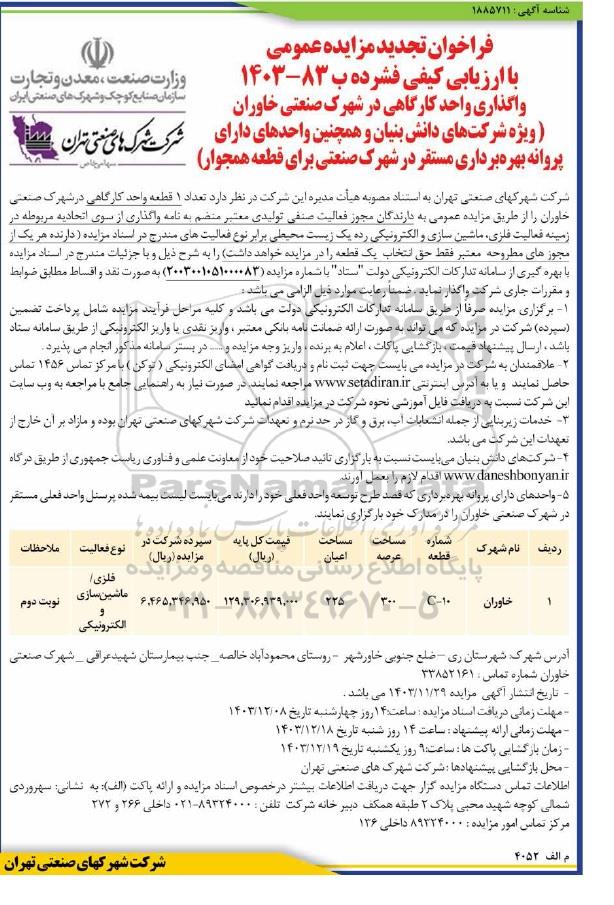 شناسه آگهی : ۱۸۸۵۷۱۱
فراخوان تجدید مزایده عمومی
با ارزیابی کیفی فشرده ب ۸۳-۱۴۰۳
واگذاری واحد کارگاهی در شهرک صنعتی خاوران
( ویژه شرکت‌های دانش بنیان و همچنین واحدهای دارای
پروانه بهره‌برداری مستقر در شهرک صنعتی برای قطعه همجوار)
وزارت صنعت، معدن و تجارت
سازمان صنایع کوچک و شهرک‌های صنعتی ایران
شرکت شهرک‌های صنعتی تهران
سهامی خاص
شرکت شهرکهای صنعتی تهران به استناد مصوبه هیأت مدیره این شرکت در نظر دارد تعداد ۱ قطعه واحد کارگاهی در شهرک صنعتی
خاوران را از طریق مزایده عمومی به دارندگان مجوز فعالیت صنفی تولیدی معتبر منضم به نامه واگذاری از سوی اتحادیه مربوطه در
زمینه فعالیت فلزی، ماشین سازی و الکترونیکی رده یک زیست محیطی برابر نوع فعالیت های مندرج در اسناد مزایده ( دارنده هر یک از
مجوز های مطروحه معتبر فقط حق انتخاب یک قطعه را در مزایده خواهد داشت) را به شرح ذیل و با جزئیات مندرج در اسناد مزایده
با بهره گیری از سامانه تدارکات الکترونیکی دولت "ستاد" با شماره مزایده (۲۰۰۳۰۰۱۰۵۱۰۰۰۰۸۳) به صورت نقد و اقساط مطابق ضوابط
و مقررات جاری شرکت واگذار نماید . ضمناً رعایت موارد ذیل الزامی می باشد :
۱- برگزاری مزایده صرفاً از طریق سامانه تدارکات الکترونیکی دولت می باشد و کلیه مراحل فرآیند مزایده شامل پرداخت تضمین
(سپرده) شرکت در مزایده که می تواند به صورت ارائه ضمانت نامه بانکی معتبر ، واریز نقدی یا واریز الکترونیکی از طریق سامانه ستاد
باشد ، ارسال پیشنهاد قیمت ، بازگشایی پاکات ، اعلام به برنده ، واریز وجه مزایده و...... در بستر سامانه مذکور انجام می پذیرد .
۲- علاقمندان به شرکت در مزایده می بایست جهت ثبت نام و دریافت گواهی امضای الکترونیکی ( توکن ) با مرکز تماس ۱۴۵۶ تماس
حاصل نمایند و یا به آدرس اینترنتی www.setadiran.ir مراجعه نمایند. در صورت نیاز به راهنمایی جامع با مراجعه به وب سایت
این شرکت نسبت به دریافت فایل آموزشی نحوه شرکت در مزایده اقدام نمائید
۳- خدمات زیربنایی از جمله انشعابات آب، برق و گاز در حد نرم و تعهدات شرکت شهرکهای صنعتی تهران بوده و مازاد بر آن خارج از
تعهدات این شرکت می باشد.
۴- شرکت‌های دانش بنیان می‌بایست نسبت به بارگزاری تائید صلاحیت خود از معاونت علمی و فناوری ریاست جمهوری از طریق درگاه
www.daneshbonyan.ir اقدام لازم را بعمل آورند.
۵- واحدهای دارای پروانه بهره‌برداری که قصد طرح توسعه واحد فعلی خود را دارند می‌بایست لیست بیمه شده پرسنل واحد فعلی مستقر
در شهرک صنعتی خاوران را در مدارک خود بارگزاری نمایند.
ردیف نام شهرک شماره قطعه مساحت عرصه مساحت اعیان قیمت کل پایه (ریال) سپرده شرکت در مزایده (ریال) نوع فعالیت ملاحظات
۱ خاوران C-۱۰ ۳۰۰ ۲۲۵ ۱۲۹,۳۰۶,۹۳۹,۰۰۰ ۶,۴۶۵,۳۴۶,۹۵۰ فلزی/ ماشین‌سازی و الکترونیکی نوبت دوم
آدرس شهرک: شهرستان ری –ضلع جنوبی خاورشهر - روستای محمودآباد خالصه_ جنب بیمارستان شهیدعراقی _ شهرک صنعتی
خاوران شماره تماس : ۳۳۸۵۲۱۶۱
- تاریخ انتشار آگهی مزایده ۱۴۰۳/۱۱/۲۹ می باشد .
-مهلت زمانی دریافت اسناد مزایده : ساعت:۱۴ روز چهارشنبه تاریخ ۱۴۰۳/۱۲/۰۸
-مهلت زمانی ارائه پیشنهاد : ساعت ۱۴ روز شنبه تاریخ ۱۴۰۳/۱۲/۱۸
-زمان بازگشایی پاکت ها : ساعت:۹ روز یکشنبه تاریخ ۱۴۰۳/۱۲/۱۹
-محل بازگشایی پیشنهادها : شرکت شهرک های صنعتی تهران
اطلاعات تماس دستگاه مزایده گزار جهت دریافت اطلاعات بیشتر درخصوص اسناد مزایده و ارائه پاکت (الف): به نشانی: سهروردی
شمالی کوچه شهید محبی پلاک ۲ طبقه همکف دبیر خانه شرکت تلفن : ۸۹۳۲۴۰۰۰-۰۲۱ داخلی ۲۶۶ و ۲۷۲
مرکز تماس امور مزایده : ۸۹۳۲۴۰۰۰ داخلی ۱۳۶
م الف ۴۰۵۲
شرکت شهرکهای صنعتی تهران
ParsNamadData
پایگاه اطلاع رسانی مناقصه و مزایده
۰۲۱-۸۸۳۴۹۶۷۰-۵